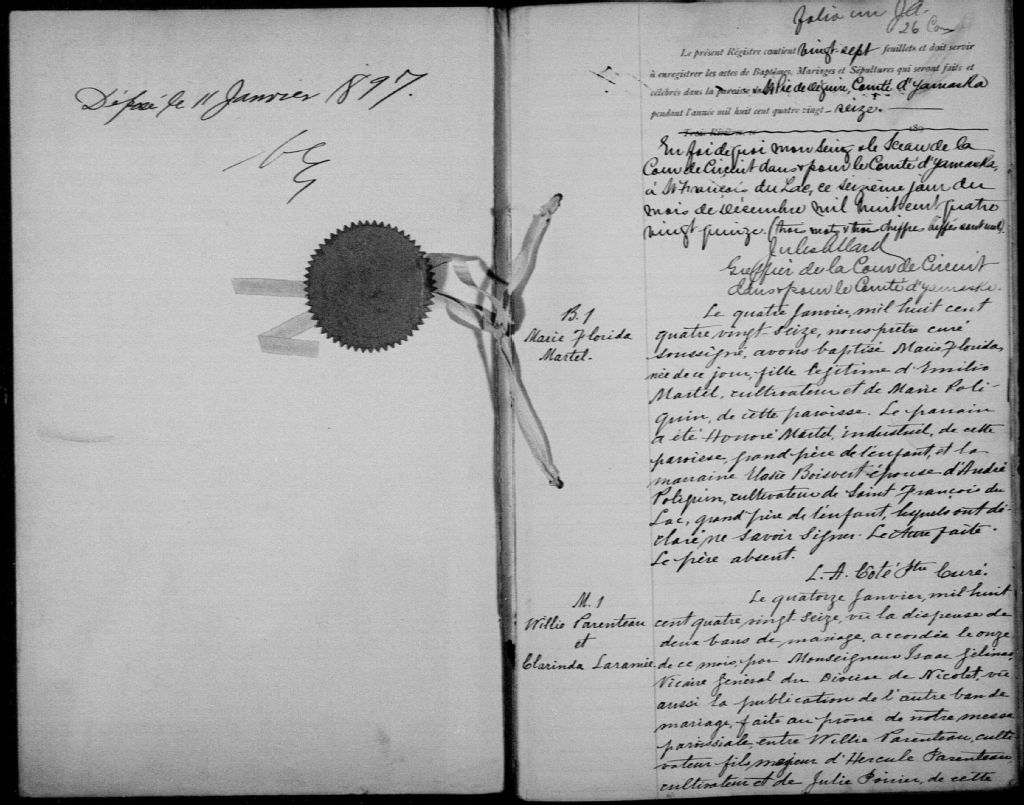 Déposé le 11 Janvier 1897.
folio un J.A.
26
Le présent Régistre contient vingt-sept feuillets et doit servir
à enregistrer les actes de Baptêmes, Mariages et Sépultures qui seront faits et
célébrés dans la paroisse de Comté d'Yamaska
pendant l'année mil huit cent quatre vingt-seize.
Trois Rivières 189
En foi de quoi mon seing & le Sceau de la
Cour de Circuit dans & pour le Comté d'Yamaska,
à St François du Lac, ce seizième jour du
mois de Décembre mil huit cent quatre
vingt quinze. (trois mots & trois chiffres biffés sont nuls).
Jules Allard
Greffier de la Cour de Circuit
dans & pour le Comté d'Yamaska.
B. 1
Marie Florida
Martel.
Le quatre Janvier, mil huit cent
quatre vingt-seize, nous prêtre curé
soussigné, avons baptisé Marie Florida,
née de ce jour, fille légitime d'Emilio
Martel, cultivateur et de Marie Poli-
quin, de cette paroisse. Le parrain
a été Honoré Martel, industriel, de cette
paroisse, grand père de l'enfant, et la
marraine Boisvert épouse d'André
Poliquin, cultivateur de Saint François du
Lac, grand père de l'enfant, lesquels ont dé-
claré ne savoir signer. Lecture faite.
Le père absent.
L. A. Côté Ptre Curé.
M. 1
Willie Parenteau
et
Clarinda Laramée
Le quatorze Janvier, mil huit
cent quatre vingt seize, vu la dispense de
deux bans de mariage, accordée le onze
de ce mois, par Monseigneur Isaac Gélinas,
Vicaire Général du Diocèse de Nicolet, vu
aussi la publication de l'autre ban de
mariage, faite au prône de notre messe
paroissiale, entre Willie Parenteau, culti
vateur fils majeur d'Hercule Parenteau
cultivateur et de Julie Poirier, de cette